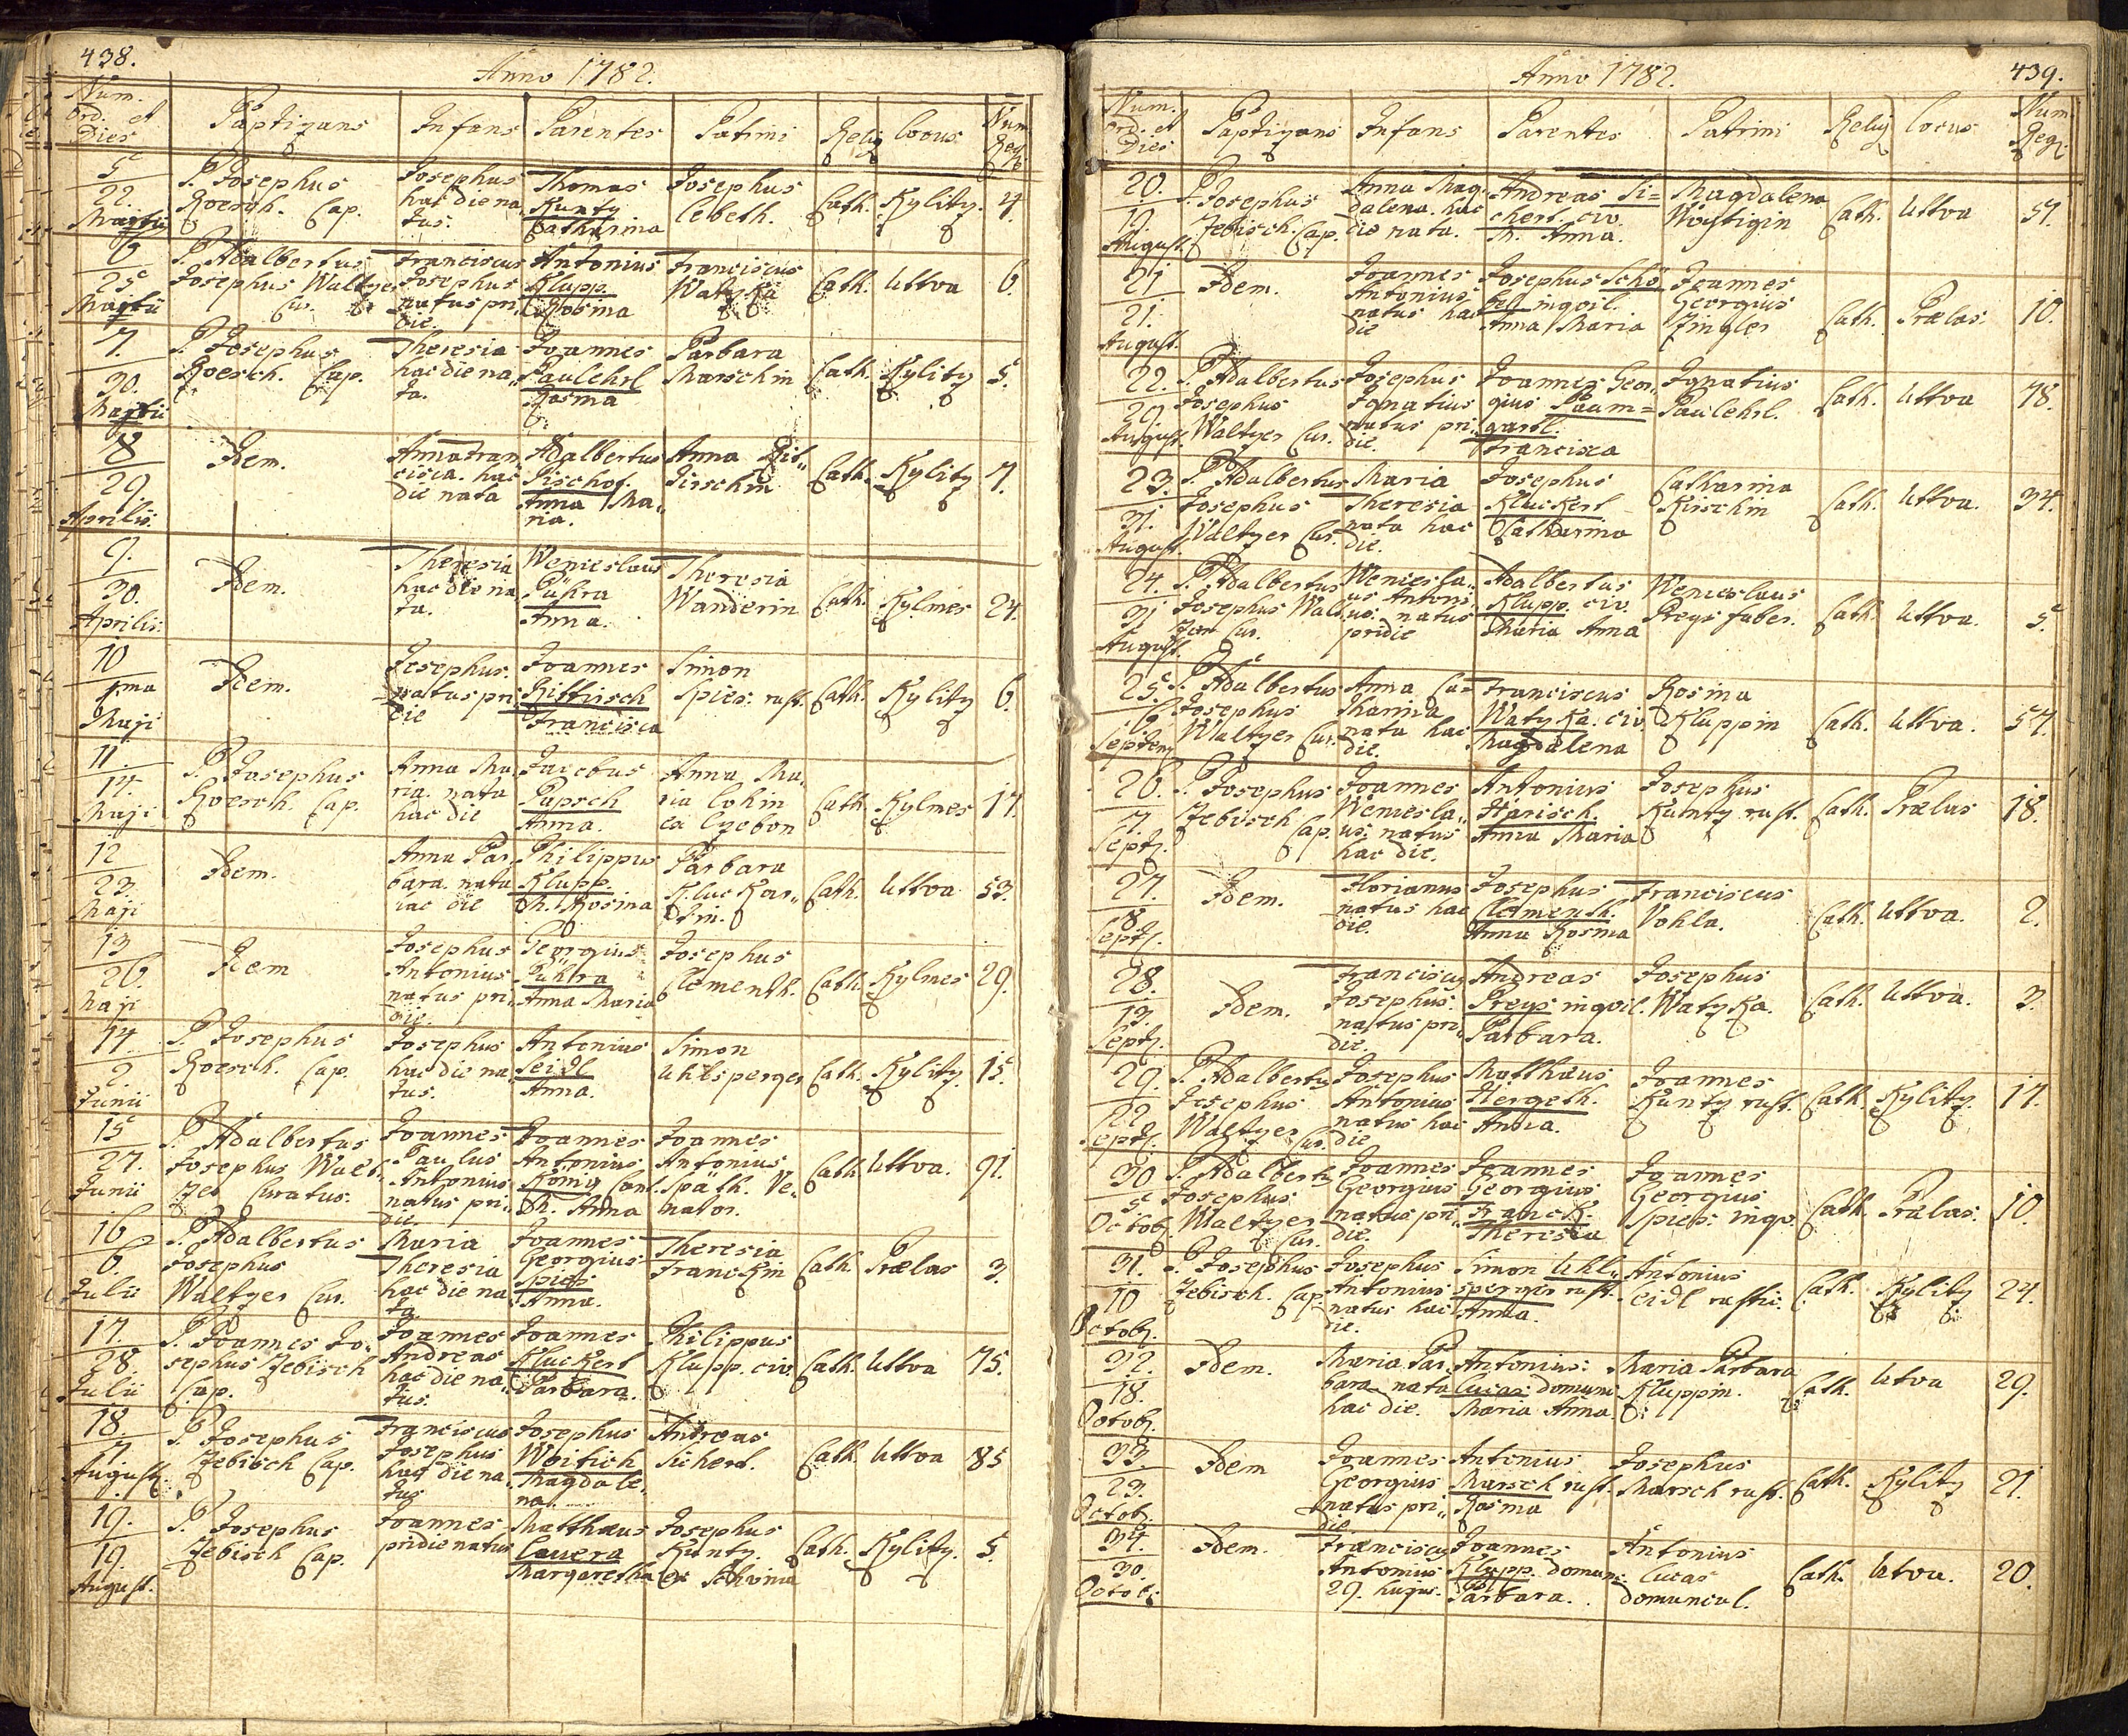 438.
Anno 1782.
Num. ord. et Dies | Baptizans | Infans | Parentes | Patrini | Relig | Locus | Num Reg.
5
22. Martii | P. Josephus Roesch. Cap. | Josephus hac die na tus. | Thomas Kuntz Catharina | Josephus Cebeth. | Cath. | Kylitz. | 4.
6
25 Martii | P. Adalbertus Josephus Waltzer Cur. | Franciscus Josephus natus pri„ die. | Antonius Klupp. Rosina | Franciscus Watzka | Cath. | Uttva | 6.
7.
30. Martii | P. Josephus Roesch. Cap. | Theresia hac die na„ ta. | Joannes Paulehrl Rosina | Barbara Marschin | Cath. | Kylitz | 5.
8
29. Aprilis | Idem. | Anna Fran cisca. hac die nata | Adalbertus Pischof. Anna Ma„ ria. | Anna Rit„ | Cath. | Kylitz | 7.
9.
30. Aprilis. | Idem. | Theresia hac die na ta. | Wenceslaus Pühra Anna. | Theresia Wanderin | Cath. | Kylmes | 24.
10
1ma Maji | Idem. | Josephus. natus pri„ die | Joannes Rittirsch Francisca | Simon Spies. rust. | Cath. | Kylitz | 6.
11.
14. Maji | P. Josephus Roesch. Cap. | Anna Ma„ ria. nata hac die | Jacobus Papsch Anna. | Anna Ma„ ria Lohin | Cath. | Kylmes | 17.
12
23. Maji | Idem. | Anna Bar„ bara. nata hac die | Philippus Klupp. M. Rosina | Barbara Kluckar„ tin. | Cath. | Uttva | 53.
13
26. Maji | Idem | Josephus Antonius natus pri„ die. | Georgius Pühra Anna Maria | Josephus Clementh. | Cath. | Kylmes | 29.
14
2. Junii | P. Josephus Roesch. Cap. | Josephus hac die na„ tus. | Antonius Seidl Anna. | Simon Uhlsperger | Cath. | Kylitz. | 15.
15
27. Junii | P. Adalbertus Josephus Walt„ zer Curatus. | Joannes Paulus Antonius natus pri„ die. | Joannes Antonius König Cant. M. Anna | Joannes Antonius Späth. Se„ nator. | Cath. | Uttva. | 91.
16
6. Julii | P. Adalbertus Josephus Waltzer Cur. | Maria Theresia hac die na ta | Joannes Georgius Spies Anna. | Theresia Franckin | Cath. | Prælas | 3.
17.
28. Julii | P. Joannes Jo„ sephus Jebisch Cap. | Joannes Andreas hac die na„ tus. | Joannes Kluckert Barbara. | Philippus Klupp. civ. | Cath. | Uttva | 75.
18.
7. August. | P. Josephus Jebisch Cap. | Franciscus Josephus hac die na„ tus | Josephus Woitich Magdale„ na | Andreas Sichert. | Cath. | Uttva | 85
19.
19. August. | P. Josephus Jebisch Cap. | Joannes pridie natus | Matthæus Couera Margaretha | Josephus Kuntz. | Cath. | Kylitz. | 5.
439.
Anno 1782.
Num. ord. et Dies | Baptizans | Infans | Parentes | Patrini | Relig | Locus | Num. Reg.
20.
12. August. | P. Josephus Jebisch. Cap. | Anna Mag„ dalena. hac die nata. | Andreas Si= chert. civ. M. Anna. | Magdalena Woytigin | Cath. | Uttva | 57.
21
21. August. | Idem. | Joannes Antonius natus hac die | Josephus Schö„ inqvil. Anna Maria | Joannes Georgius Zingler | Cath. | Prælas. | 10.
22.
29. August. | P. Adalbertus Josephus Waltzer Cur. | Josephus Ignatius natus pri„ die. | Joannes Geor„ gius Paum= gartl. Francisca | Ignatius Paulehrl. | Cath. | Uttva | 78.
23.
31. August. | P. Adalbertus Josephus Waltzer Cur. | Maria Theresia nata hac die. | Josephus Kluckert Catharina | Catharina Kirschin | Cath. | Uttva. | 34.
24.
31 August. | P. Adalbertus Josephus Walt zer Cur. | Wencesla„ us Antoni us. natus pridie | Adalbertus Klupp. civ. Maria Anna | Wenceslaus Preys faber. | Cath. | Uttva. | 5.
25.
6. Septem | P. Adalbertus Josephus Waltzer Cur. | Anna Ca= tharina nata hac die. | Franciscus Watzka. civ. Magdalena | Rosina Kluppin | Cath. | Uttva. | 57.
26.
7. Septz. | P. Josephus Jebisch Cap. | Joannes Wencesla„ us. natus hac die. | Antonius Harisch. Anna Maria | Josephus Kuntz rust. | Cath. | Prælas | 18.
27.
8 Septz. | Idem. | Florianus natus hac die. | Josephus Clementh. Anna Rosina | Franciscus Vohla. | Cath. | Uttva. | 2.
28.
13. Septz. | Idem. | Franciscus Josephus. natus pri„ die. | Andreas Preys inqvil. Barbara. | Josephus Watzka. | Cath. | Uttva. | 3.
29.
22. Septz. | P. Adalbertus Josephus Waltzer Cur. | Josephus Antonius natus hac die | Matthæus Hergeth. Anna. | Joannes Kuntz rust. | Cath. | Kylitz. | 17.
30
5 Octob. | P. Adalbertus Josephus Waltzer Cur. | Joannes Georgius natus pri„ die. | Joannes Georgius Franck. Theresia | Joannes Georgius Spies. inqv. | Cath. | Prælas. | 10.
31.
10 Octob. | P. Josephus Jebisch. Cap. | Josephus Antonius natus hac die. | Simon Uhl„ sperger rust. Anna. | Antonius Seidl rustic. | Cath. | Kylitz | 24.
32.
18. Octob. | Idem. | Maria Bar„ bara nata hac die. | Antonius: Lucas domunc Maria Anna | Maria Barbara Kluppin. | Cath. | Utva | 29.
33
23. Octob. | Idem | Joannes Georgius natus pri„ die | Antonius Marsch rust. Rosina | Josephus Marsch rust. | Cath. | Kylitz | 21.
34.
30. Octob. | Idem. | Franciscus Antonius 29. hujus. | Joannes Klupp. domunc Barbara. | Antonius Lucas domuncul. | Cath. | Utva. | 20.